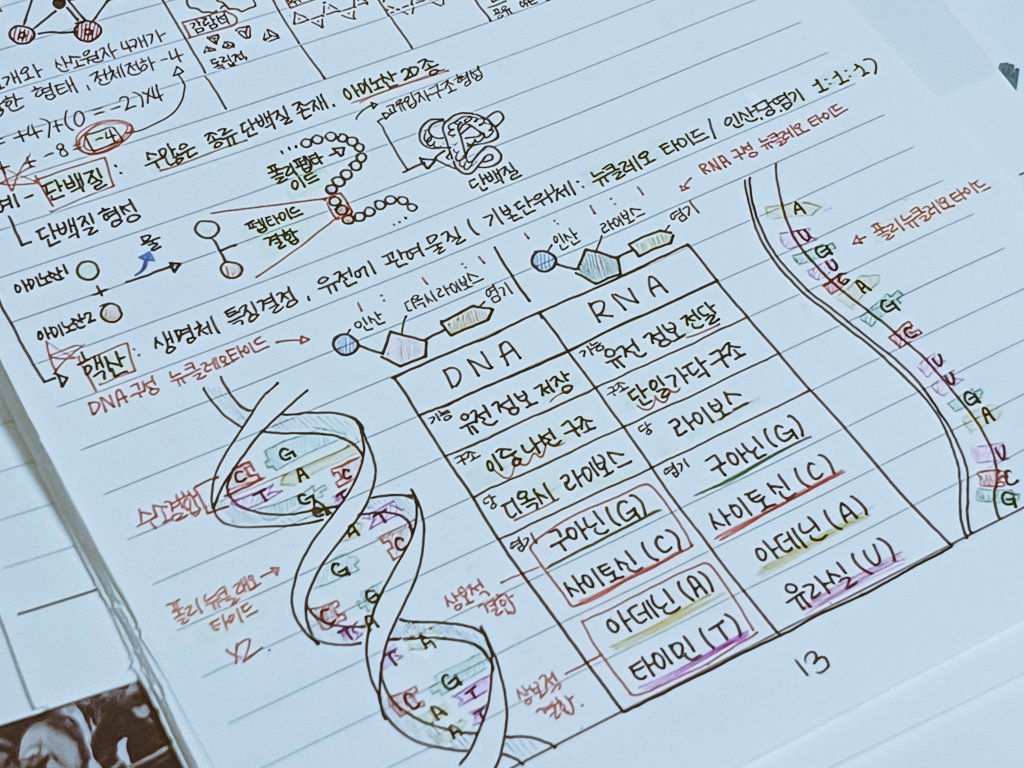 감람석
독립적
개와 산소원자 4개가
한 형태, 전체전하 -4
+4)+(0 = -2)×4
+ -8 = -4
단백질 : 수많은 종류 단백질 존재, 아미노산 20종
고유입자구조 형성
폴리펩타이드
단백질
단백질 형성
물
펩타이드 결합
아미노산1
+
아미노산2
핵산 : 생명체 특징결정, 유전에 관여 물질 ( 기본단위체 : 뉴클레오 타이드 / 인산:당:염기 1:1:1)
RNA 구성 뉴클레오 타이드
DNA 구성 뉴클레오타이드
인산
디옥시 라이보스
염기
인산
라이보스
염기
DNA
RNA
기능 유전 정보 저장
기능 유전 정보 전달
구조 이중 나선 구조
구조 단일가닥 구조
당 디옥시 라이보스
당 라이보스
염기 구아닌(G)
염기 구아닌(G)
사이토신(C)
사이토신(C)
아데닌(A)
아데닌(A)
타이민(T)
유라실(U)
상보적 결합
상보적 결합
수소결합
폴리 뉴클레오 타이드
×2
G
C
A
C
T
G
T
A
T
C
G
G
C
T
A
A
T
G
C
T
A
T
A
폴리뉴클레오타이드
A
U
G
U
C
A
G
C
U
U
G
A
U
C
G
13